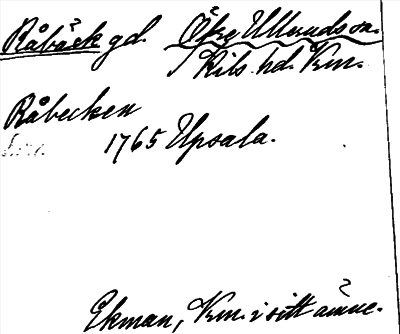 Råbäck gd. Öke Ulunds sn.
Kils hd. Vrm.
Råbecken
1765 Upsala.
Ekman, Vrm. i sitt ämne.